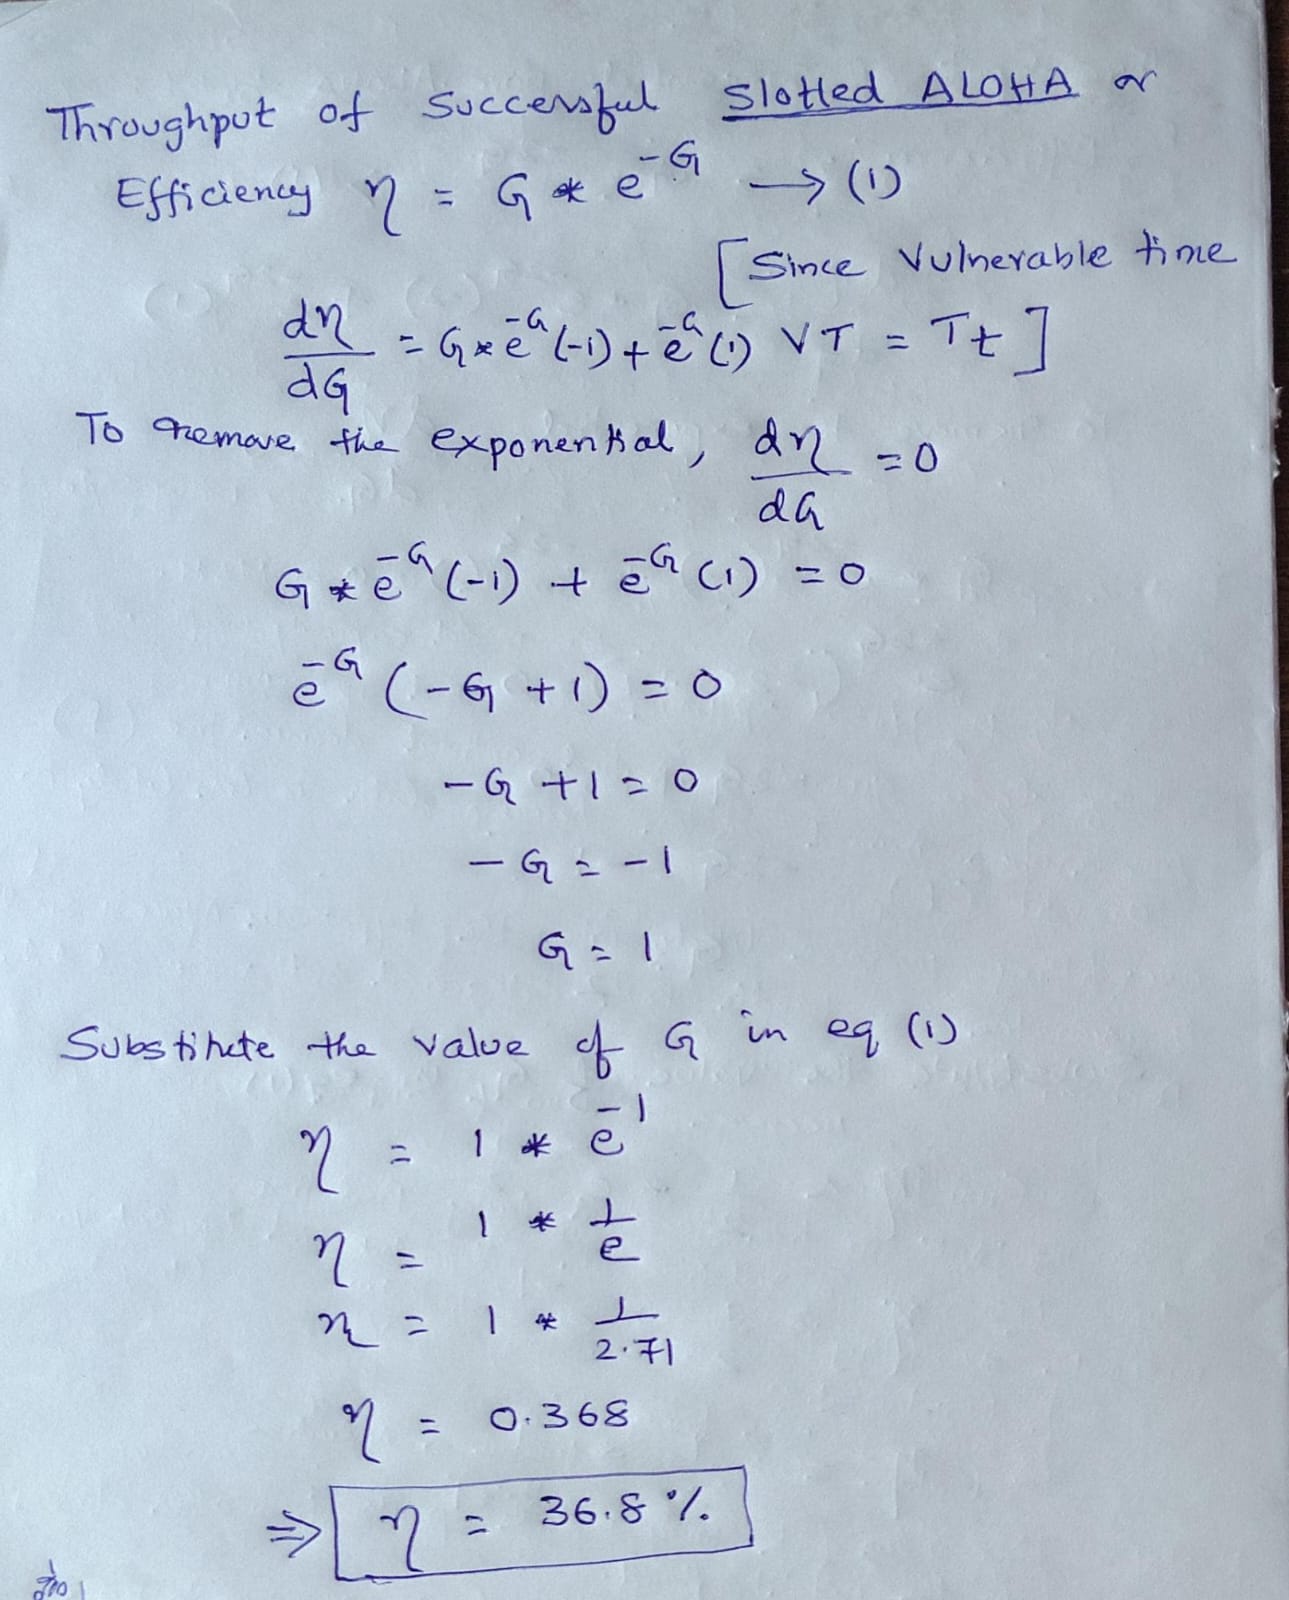 Throughput of Successful Slotted ALOHA or
Efficiency η = G * e^-G → (1)
[Since Vulnerable time
dη/dG = G * e^-G (-1) + e^-G (1) VT = Tt]
To remove the exponential, dη/dG = 0
G * e^-G (-1) + e^-G (1) = 0
e^-G (-G + 1) = 0
-G + 1 = 0
-G = -1
G = 1
Substitute the value of G in eq (1)
η = 1 * e^-1
η = 1 * 1/e
η = 1 * 1/2.71
η = 0.368
⇒ η = 36.8 %